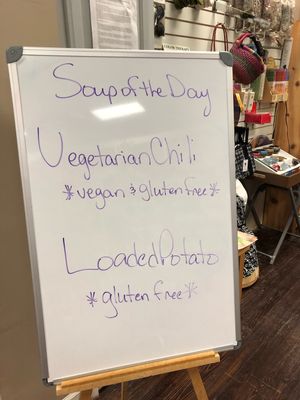 Soup of the Day
Vegetarian Chili
*vegan & gluten free*
Loaded Potato
*gluten free*